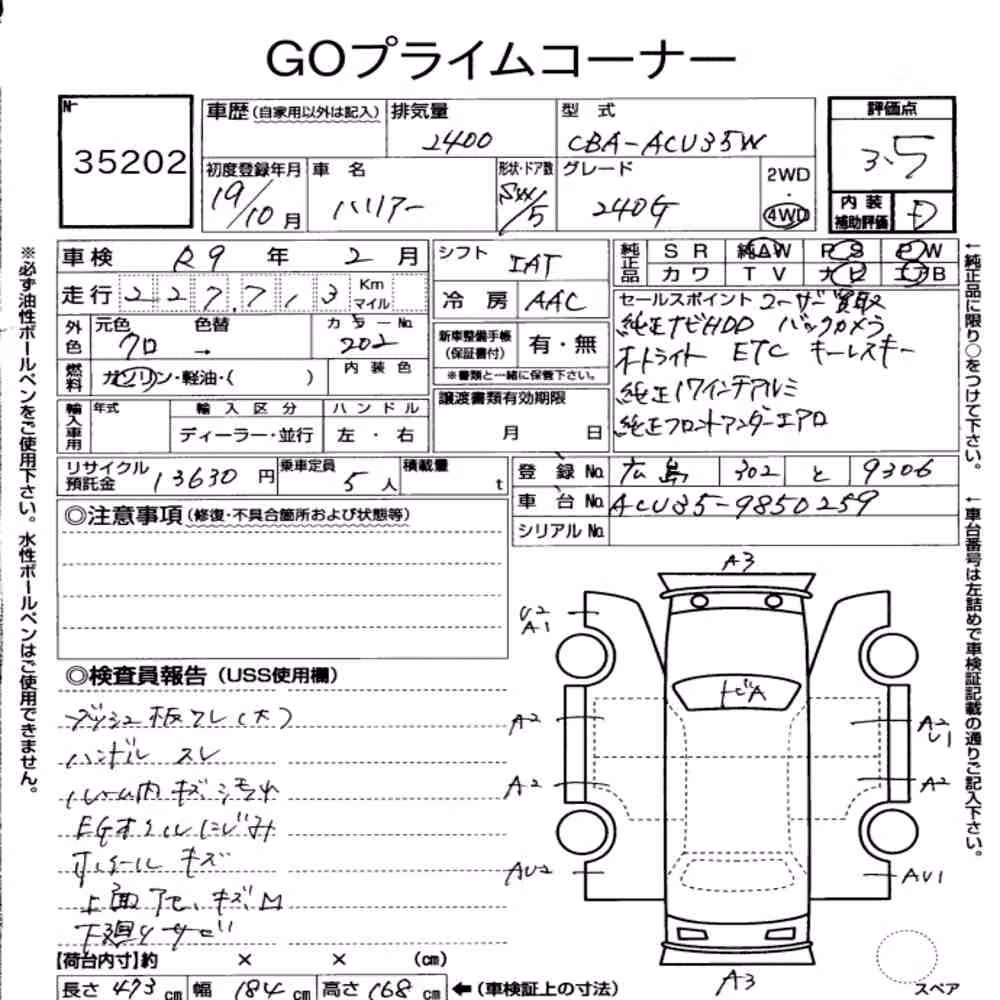 GOプライムコーナー
No.
35202
車歴(自家用以外は記入) 排気量 2400
型式 CBA-ACU35W
評価点 3.5
初度登録年月 19/10月
車名 ハリアー
形状・ドア数 SW/5
グレード 240G
2WD・4WD
内装補助評価 D
車検 R9年 2月
シフト IAT
純正品 SR 純AW PS PW
カワ TV ナビ エアB
走行 227,713 Km マイル
冷房 AAC
外色 元色 クロ 色替 → カラーNo. 202
新車整備手帳(保証書付) 有・無
※書類と一緒に保管下さい。
燃料 ガソリン・軽油・( ) 内装色
セールスポイント ユーザー買取
純正ナビHDD バックカメラ
オートライト ETC キーレスキー
純正17インチアルミ
純正フロントアンダーエアロ
輸入車用 年式 輸入区分 ハンドル
ディーラー・並行 左・右
譲渡書類有効期限
月 日
リサイクル預託金 13630円 乗車定員 5人 積載量 t
登録No. 広島 302 と 9306
車台No. ACU35-9850259
シリアルNo.
◎注意事項(修復・不具合箇所および状態等)
◎検査員報告(USS使用欄)
ダッシュ板ワレ(大)
ハンドル スレ
ルーム内 キズ、シミ、ヤケ
EGオイルにじみ
ホイール キズ
上面 アセ、キズ、凹
下廻りサビ
【荷台内寸】約 × × (cm)
長さ 473cm 幅 184cm 高さ 168cm ←(車検証上の寸法)
A3
U2
A1
トビA
A2
A2
U1
A2
A2
AU2
AU1
A3
スペア
※必ず油性ボールペンをご使用下さい。水性ボールペンはご使用できません。
←純正品に限り○をつけて下さい。
←車台番号は左詰めで車検証記載の通りご記入下さい。